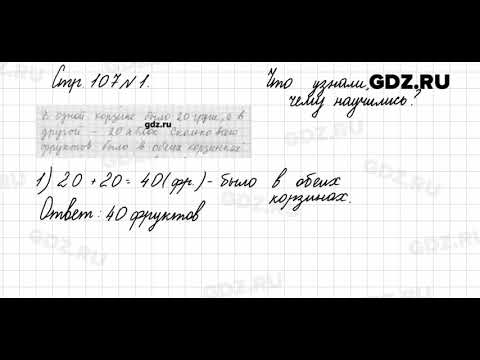 Стр. 107 № 1.
Что узнали,
чему научились?
GDZ.RU
В одной корзине было 20 груш, а в
другой - 20 яблок. Сколько всего
фруктов было в обеих корзинах
gdz.ru
1) 20 + 20 = 40 (фр.) - было в обеих
корзинах.
Ответ: 40 фруктов